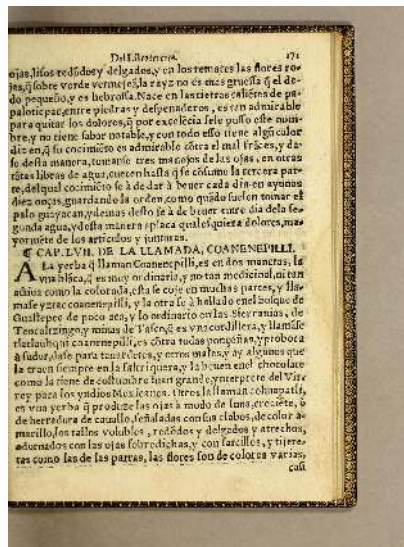 Del L. Primero. 171
ojas, lisos redōdos y delgados, y en los remates las flores ro-
jas, q̃ sobre verde vermejeā, la rayz no es mas gruessa q̃ el de-
do pequeño, y es hebrosa. Nace en las tierras calientes de pa-
paloticpac, entre piedras y despenaderos, es tan admirable
para quitar los dolores, q̃ por excelēcia se le puso este nom-
bre, y no tiene sabor notable, y con todo esso tiene algũ calor
dizen, q̃ su cocimiēto es admirable cōtra el mal frāces, y da-
se desta manera, tomanse tres manojos de las ojas, en otras
tātas libras de agua, cuecen hasta q̃ se cōsume la tercera par-
te, del qual cocimiēto se à de dar à beuer cada dia en ayunas
diez onças, guardando la orden, como quādo suelen tomar el
palo guayacan, y demas desto se à de beuer entre dia de la se-
gunda agua, y desta manera aplaca qualesquiera dolores, ma-
yormēte de los articulos y junturas.
¶ CAP. LVII. DE LA LLAMADA, COANENEPILLI.
A La yerba q̃ llaman Coanenepilli, es en dos maneras, la
vna blāca, q̃ es muy ordinaria, y no tan medicinal, ni tan
actiua como la colorada, esta se coje en muchas partes, y lla-
mase yztac coanenepilli, y la otra se à hallado en el bosque de
Guastepec de poco acá, y lo ordinario en las Sierranias, de
Tencaltzingo, y minas de Tasco, q̃ es vna cordillera, y llamase
tlatlauhqui coanenepilli, es cōtra todas ponçoñas, y prouoca
à sudor, dase para tauardetes, y otros males, y ay algunos que
la traen siempre en la faltriquera, y la beuen en el chocolate
como la tiene de costumbre iuan grande, ynterprete del Vire
rey para los yndios Mexicanos. Otros la llaman cohuapatli,
es vna yerba q̃ produze las ojas à modo de luna, creciēte, ò
de herradura de cauallo, señaladas con sus clabos, de color a-
marillo, los tallos volubles, redōdos y delgados y a trechos,
adornados con las ojas sobredichas, y con sarcillos, y tijere-
tas como las de las parras, las flores son de colores varias,
casi